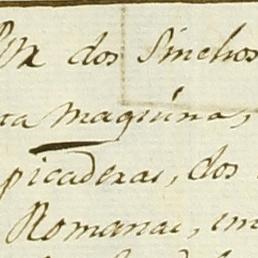 dos Sinchos
ta maquina,
picaderas, dos
Romanas, un